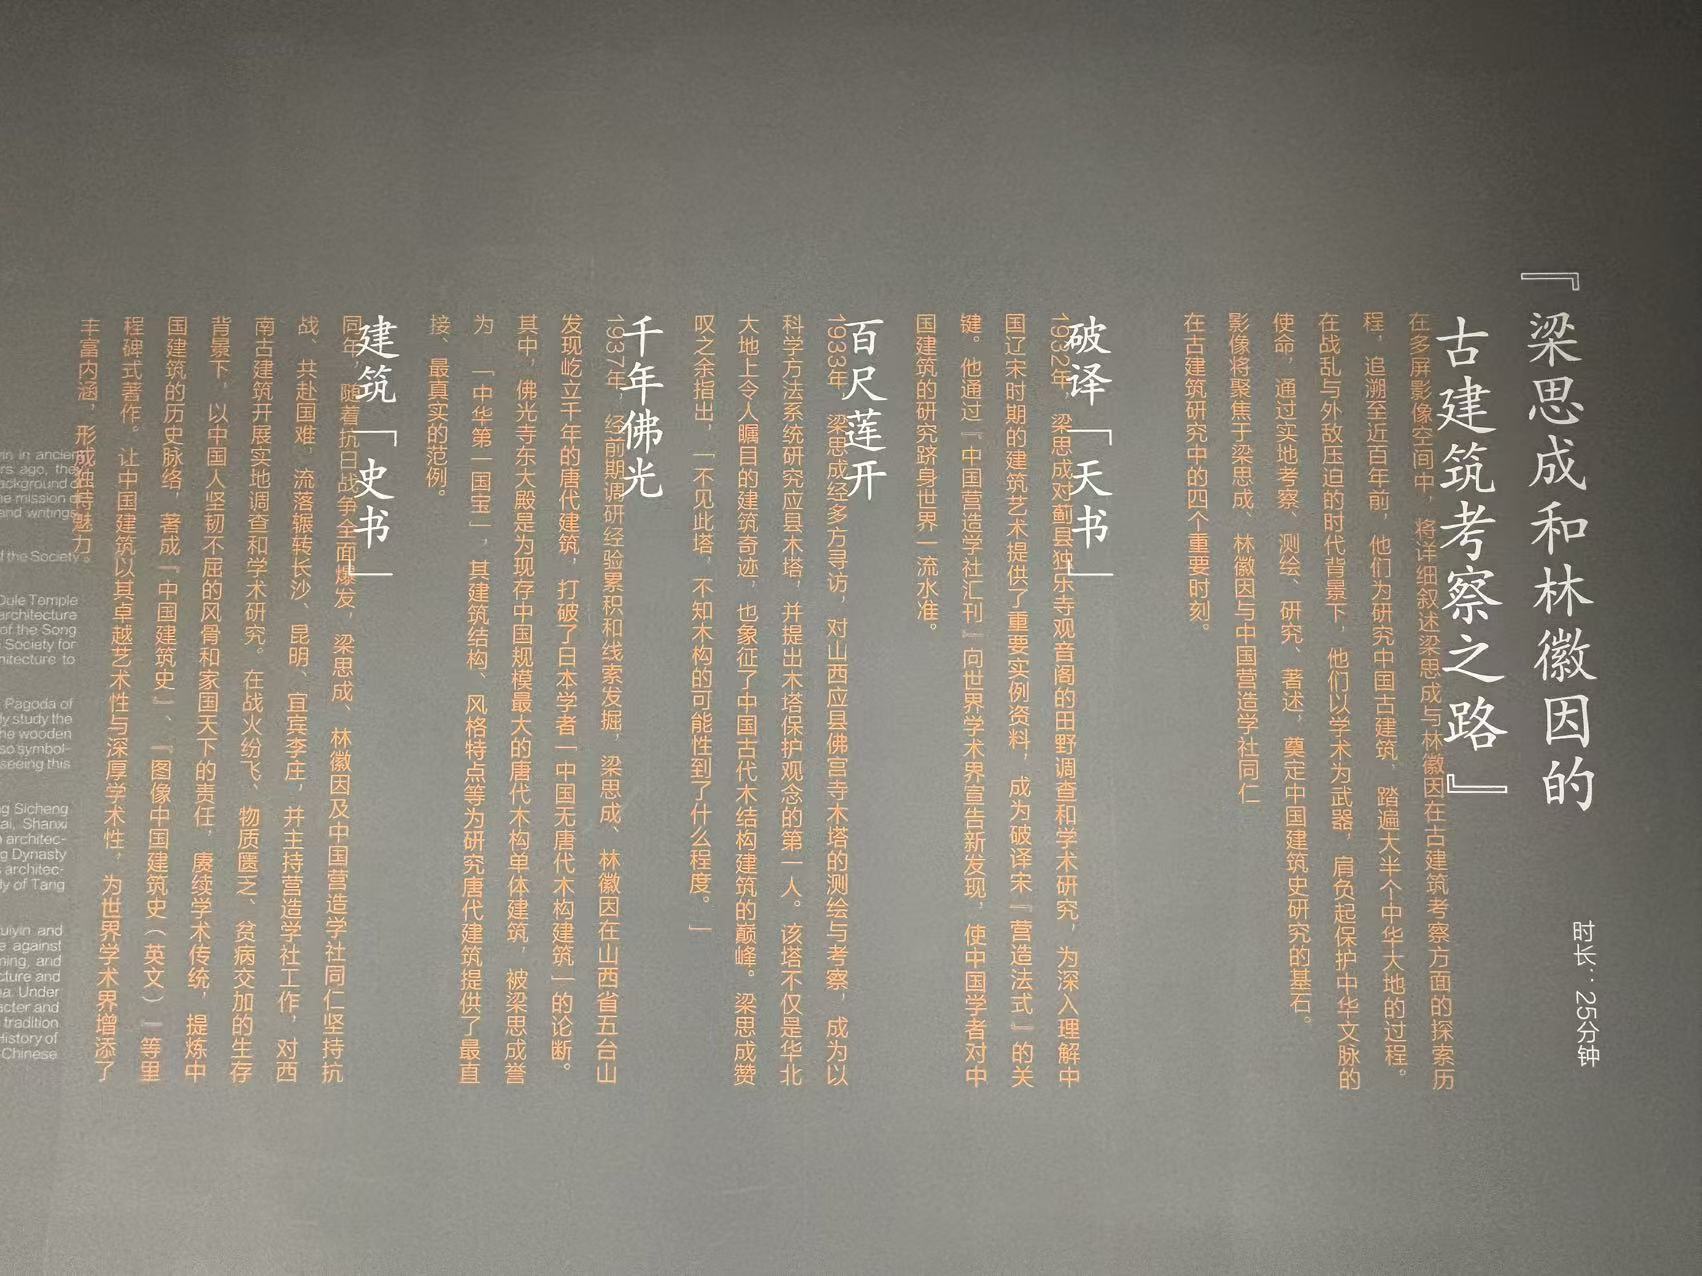 『梁思成和林徽因的
古建筑考察之路』
时长：25分钟
在多屏影像空间中，将详细叙述梁思成与林徽因在古建筑考察方面的探索历
程，追溯至近百年前，他们为研究中国古建筑，踏遍大半个中华大地的过程。
在战乱与外敌压迫的时代背景下，他们以学术为武器，肩负起保护中华文脉的
使命，通过实地考察、测绘、研究、著述，奠定中国建筑史研究的基石。
影像将聚焦于梁思成、林徽因与中国营造学社同仁
在古建筑研究中的四个重要时刻。
破译「天书」
1932年，梁思成对蓟县独乐寺观音阁的田野调查和学术研究，为深入理解中
国辽宋时期的建筑艺术提供了重要实例资料，成为破译宋『营造法式』的关
键。他通过『中国营造学社汇刊』向世界学术界宣告新发现，使中国学者对中
国建筑的研究跻身世界一流水准。
百尺莲开
1933年，梁思成经多方寻访，对山西应县佛宫寺木塔的测绘与考察，成为以
科学方法系统研究应县木塔，并提出木塔保护观念的第一人。该塔不仅是华北
大地上令人瞩目的建筑奇迹，也象征了中国古代木结构建筑的巅峰。梁思成赞
叹之余指出，「不见此塔，不知木构的可能性到了什么程度。」
千年佛光
1937年，经前期调研经验累积和线索发掘，梁思成、林徽因在山西省五台山
发现屹立千年的唐代建筑，打破了日本学者「中国无唐代木构建筑」的论断。
其中，佛光寺东大殿是为现存中国规模最大的唐代木构单体建筑，被梁思成誉
为「中华第一国宝」，其建筑结构、风格特点等为研究唐代建筑提供了最直
接、最真实的范例。
建筑「史书」
同年，随着抗日战争全面爆发，梁思成、林徽因及中国营造学社同仁坚持抗
战、共赴国难，流落辗转长沙、昆明、宜宾李庄，并主持营造学社工作，对西
南古建筑开展实地调查和学术研究。在战火纷飞、物质匮乏、贫病交加的生存
背景下，以中国人坚韧不屈的风骨和家国天下的责任，赓续学术传统，提炼中
国建筑的历史脉络，著成『中国建筑史』、『图像中国建筑史（英文）』等里
程碑式著作。让中国建筑以其卓越艺术性与深厚学术性，为世界学术界增添了
丰富内涵，形成独特魅力。
in in ancien
rs ago, they
ackground o
he mission o
and writings,
f the Society.
Dule Temple
architecture
of the Song
Society for
hitecture to
Pagoda of
ly study the
he wooden
so symbol-
seeing this
ng Sicheng
ai, Shanxi
architec-
g Dynasty
architec-
dy of Tang
uiyin and
e against
ming, and
cture and
a. Under
acter and
tradition
History of
Chinese